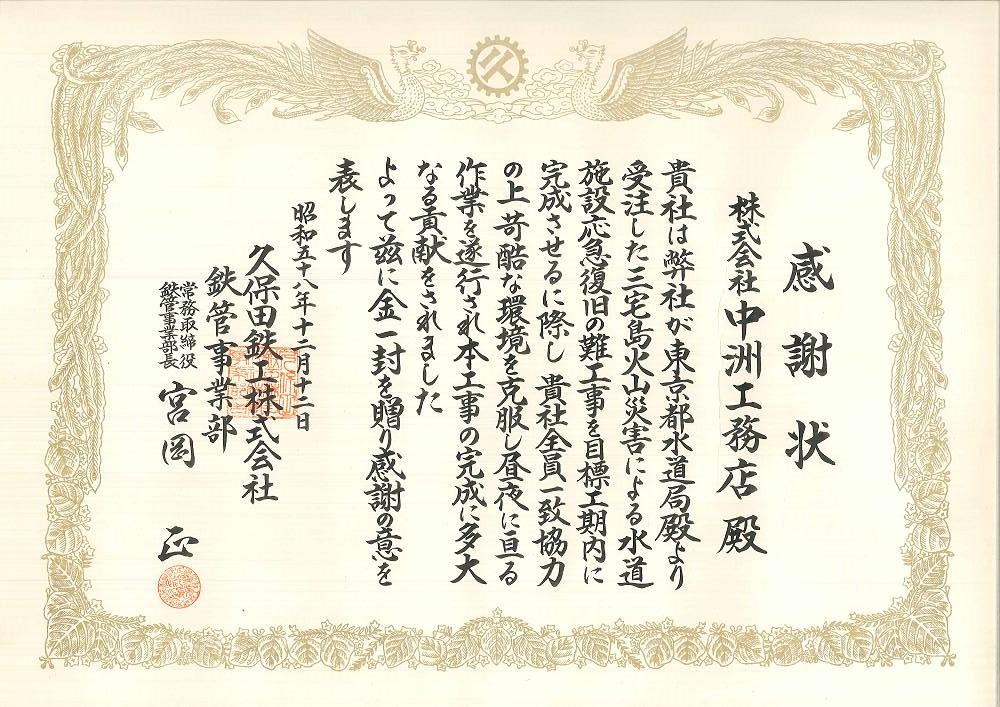 感謝状
株式会社中洲工務店殿
貴社は弊社が東京都水道局殿より
受注した三宅島火山災害による水道
施設応急復旧の難工事を目標工期内に
完成させるに際し 貴社全員一致協力
の上苛酷な環境を克服し昼夜に亘る
作業を遂行され本工事の完成に多大
なる貢献をされました
よって玆に金一封を贈り感謝の意を
表します
昭和五十八年十二月十二日
久保田鉄工株式会社
鉄管事業部
常務取締役
鉄管事業部長
宮岡 正